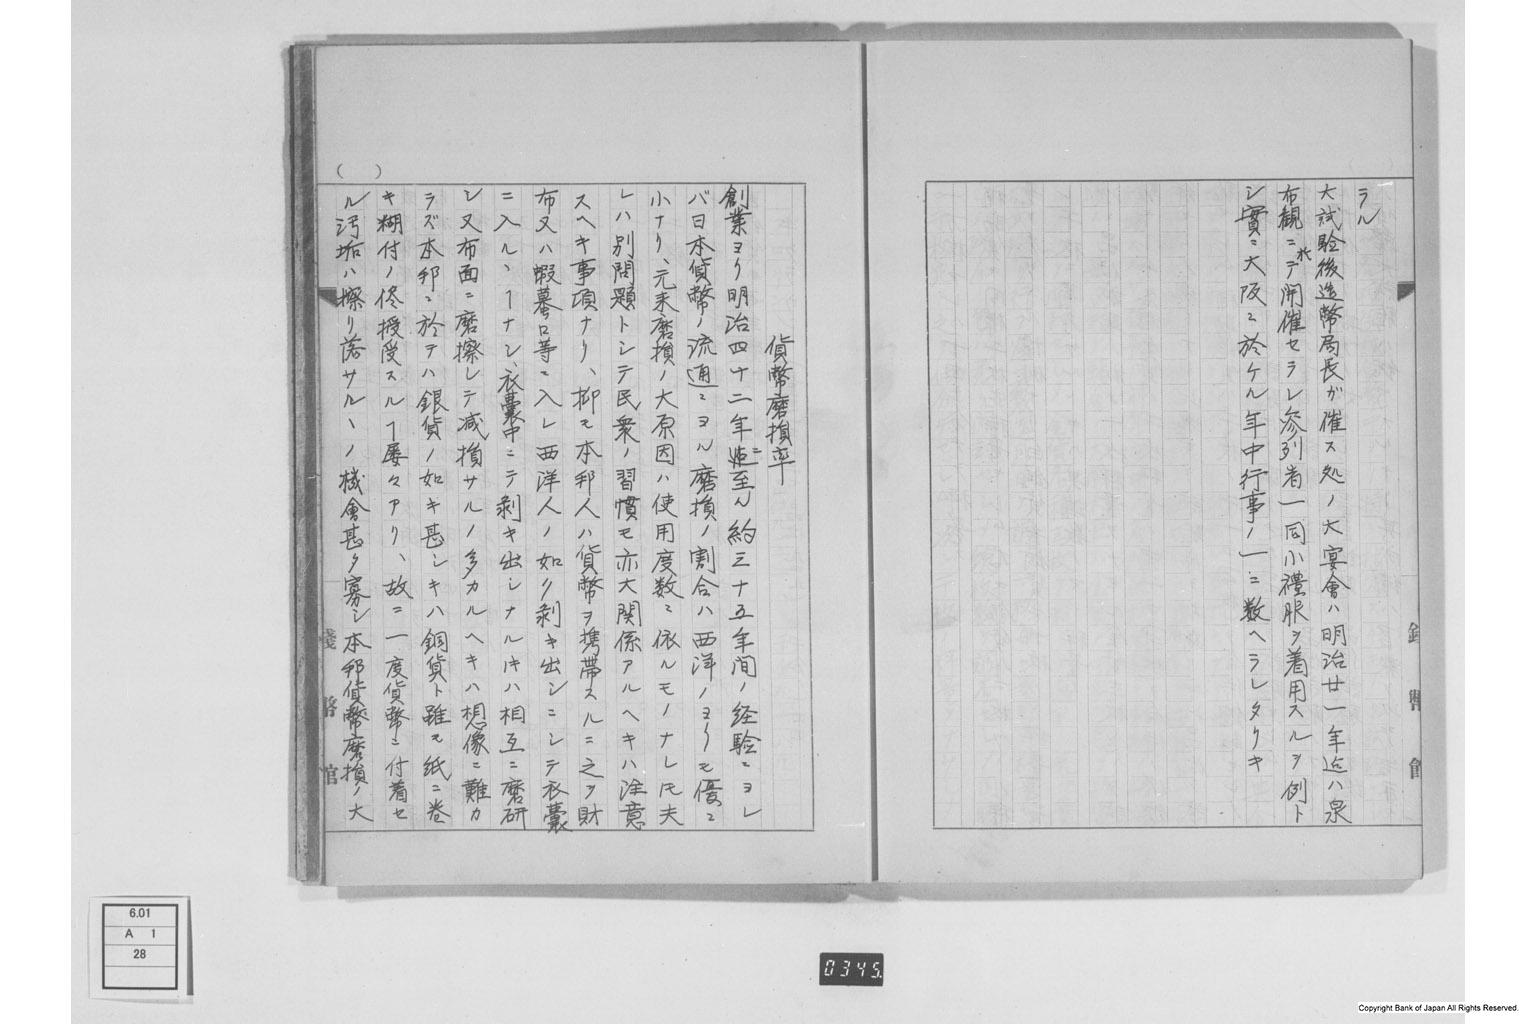 ラル
大試験後造幣局長ガ催ス処ノ大宴會ハ明治廿一年迄ハ泉
布観ニ於テ開催セラレ参列者一同小禮服ヲ着用スルヲ例ト
シ實ニ大阪ニ於ケル年中行事ノ一ニ数ヘラレタリキ
貨幣磨損率
創業ヨリ明治四十二年ニ至ル約三十五年间ノ経験ニヨレ
バ日本貨幣ノ流通ニヨル磨損ノ割合ハ西洋ノヨリモ優ニ
小ナリ、元来磨損ノ大原因ハ使用度数ニ依ルモノナレ𪜈夫
レハ別問題トシテ民衆ノ習慣モ亦大関係アルヘキハ注意
スヘキ事項ナリ、抑モ本邦人ハ貨幣ヲ携帯スルニ之ヲ財
布又ハ蝦蟇口等ニ入レ西洋人ノ如ク剥キ出シニシテ衣嚢
ニ入ルヽヿナシ、衣嚢中ニテ剥キ出シナルキハ相互ニ磨研
シ又布面ニ磨擦シテ減損サルノ多カルヘキハ想像ニ難カ
ラズ本邦ニ於テハ銀貨ノ如キ甚シキハ銅貨ト雖モ紙ニ巻
キ糊付ノ侭授受スルヿ屡々アリ、故ニ一度貨幣ニ付着セ
ル汚垢ハ擦リ落サルヽノ機會甚タ寡シ本邦貨幣磨損ノ大
錢幣館
6.01
A 1
28
0345
Copyright Bank of Japan All Rights Reserved.